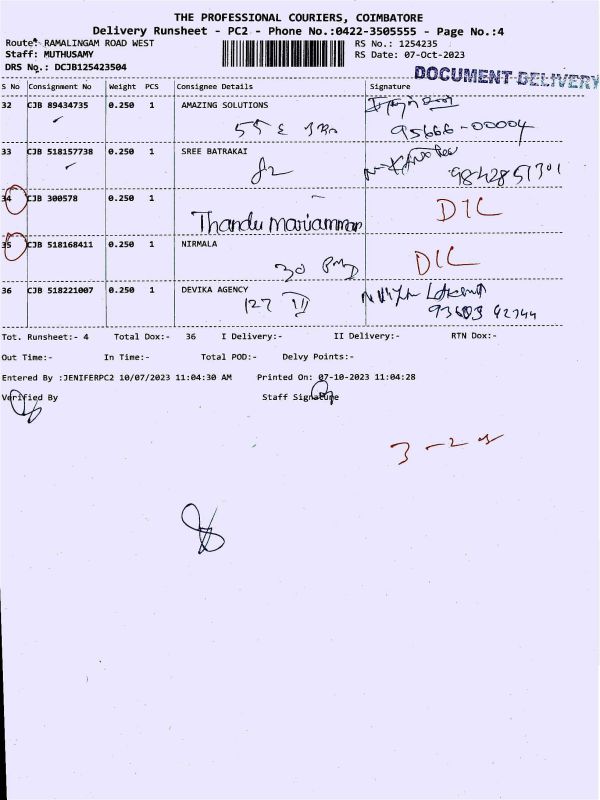 THE PROFESSIONAL COURIERS, COIMBATORE
Delivery Runsheet - PC2 - Phone No.:0422-3505555 - Page No.:4
Route: RAMALINGAM ROAD WEST RS No.: 1254235
Staff: MUTHUSAMY RS Date: 07-Oct-2023
DRS No.: DCJB125423504 DOCUMENT DELIVERY
S No Consignment No Weight PCS Consignee Details Signature
32 CJB 89434735 0.250 1 AMAZING SOLUTIONS
95666-00004
33 CJB 518157738 0.250 1 SREE BATRAKAI
34 CJB 300578 0.250 1 D1L
Thandu mariamman
35 CJB 518168411 0.250 1 NIRMALA D1L
30
36 CJB 518221007 0.250 1 DEVIKA AGENCY
127
Tot. Runsheet:- 4 Total Dox:- 36 I Delivery:- II Delivery:- RTN Dox:-
Out Time:- In Time:- Total POD:- Delvy Points:-
Entered By :JENIFERPC2 10/07/2023 11:04:30 AM Printed On: 07-10-2023 11:04:28
Verified By Staff Signature